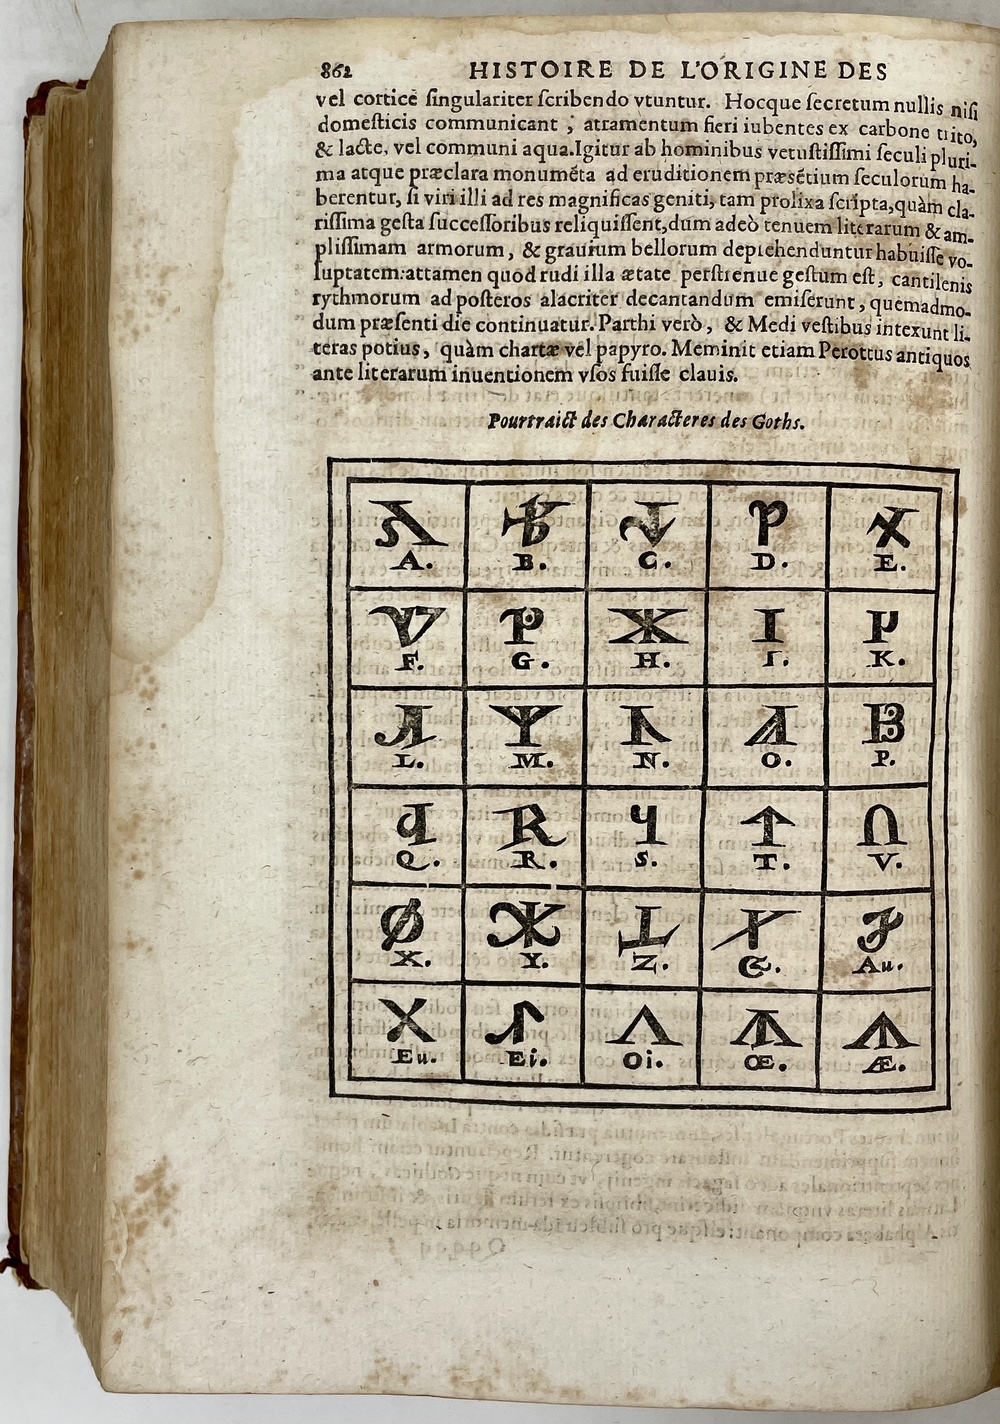 862 HISTOIRE DE L'ORIGINE DES
vel corticē ſingulariter ſcribendo vtuntur. Hocque ſecretum nullis niſi
domeſticis communicant ; atramentum fieri iubentes ex carbone trito,
& lacte, vel communi aqua. Igitur ab hominibus vetuſtiſſimi ſeculi pluri-
ma atque præclara monumēta ad eruditionem præsētium ſeculorum ha-
berentur, ſi viri illi ad res magnificas geniti, tam prolixa ſcripta, quàm cla-
riſſima geſta ſucceſſoribus reliquiſſent, dum adeò tenuem literarum & am-
pliſſimam armorum, & grauium bellorum deprehenduntur habuiſſe vo-
luptatem: attamen quod rudi illa ætate perſtrenue geſtum eſt, cantilenis
rythmorum ad poſteros alacriter decantandum emiſerunt, quemadmo-
dum præſenti die continuatur. Parthi verò, & Medi veſtibus intexunt li-
teras potius, quàm chartæ vel papyro. Meminit etiam Perottus antiquos
ante literarum inuentionem vſos fuiſſe clauis.
Pourtraict des Characteres des Goths.
A. B. C. D. E.
F. G. H. I. K.
L. M. N. O. P.
Q. R. S. T. V.
X. Y. Z. &. Au.
Eu. Ei. Oi. Œ. Æ.